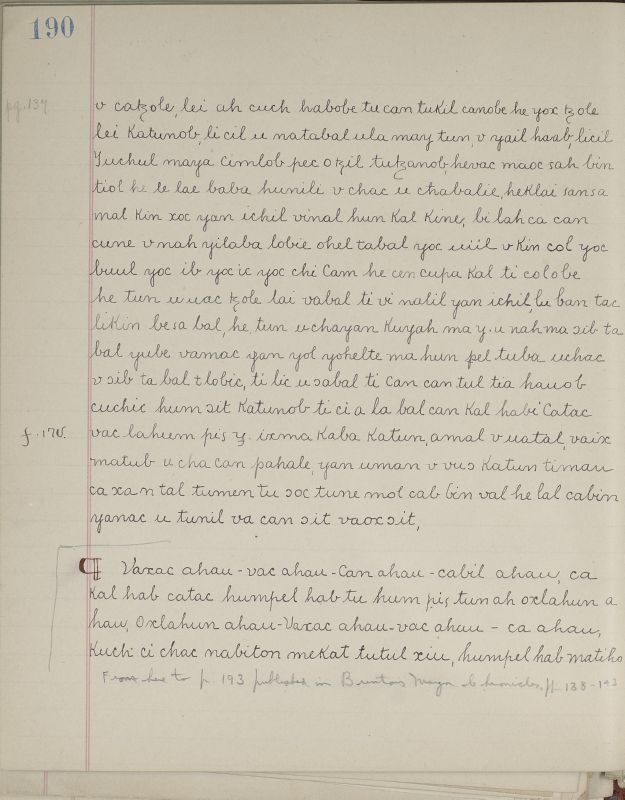 190
pg. 137
v catzole, lei ah cuch habobe tu can tukil canobe he yox tzole
lei Katunob, li cil u natabal ula may tun, v yail haab, licil
Yuchul maya Cimlob pec otzil tutzanob, hevac maoc sah bin
tiol he le lae baba hunili v chac u chabalie, heklai sansa
mal Kin xoc yan ichil vinal hun Kal Kine, bi lah ca can
cune v nah yilaba lobie ohel tabal yoc uiil v Kin col yoc
buul yoc ib yx ic yoc chi Cam he cen cupa Kal ti colobe
he tun u uac tzole lai vabal ti vi nalil yan ichil, lu ban tac
likin besa bal, he, tun uchayan Kuyah ma y. u nah ma sib ta
bal yube vamac yan yol yohelte ma hun pel tuba uchac
v sib ta bal tlobic, ti lic u sabal ti Can can tul tia hauob
cuchic hum sit Katunob ti ci a la bal can Kal habi Catac
f. 170.
vac lahum pis y. ixma Kaba Katun, amal v uatal, vaix
matub u cha can pahale, yan uman v vus Katun timau
ca xan tal tumen tu soc tune mol cab bin val he lal cabin
yanac u tunil va can sit vaox sit,
¶ Vaxac ahau - vac ahau - Can ahau - cabil ahau, ca
Kal hab catac humpel hab tu hum pis tun ah oxlahun a
hau, Oxlahun ahau - Vaxac ahau - vac ahau - ca ahau,
Kuch ci chac nabiton meKat tutul xiu, humpel hab matiho
From here to p. 193 published in Brintons Maya Chronicles, pp. 138-143